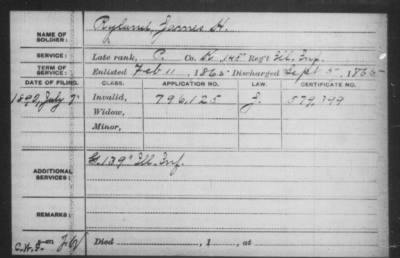 NAME OF SOLDIER: Ryland, James H.
SERVICE: Late rank, P. Co. K 145" Reg't Ill. Inf.
TERM OF SERVICE: Enlisted Feb 11, 1865 Discharged Sept 5, 1865
DATE OF FILING. CLASS. APPLICATION NO. LAW. CERTIFICATE NO.
1890, July 7 Invalid, 796,125 J. 579,799
Widow,
Minor,
ADDITIONAL SERVICES: 139" Ill. Inf.
REMARKS:
Died , 1 , at